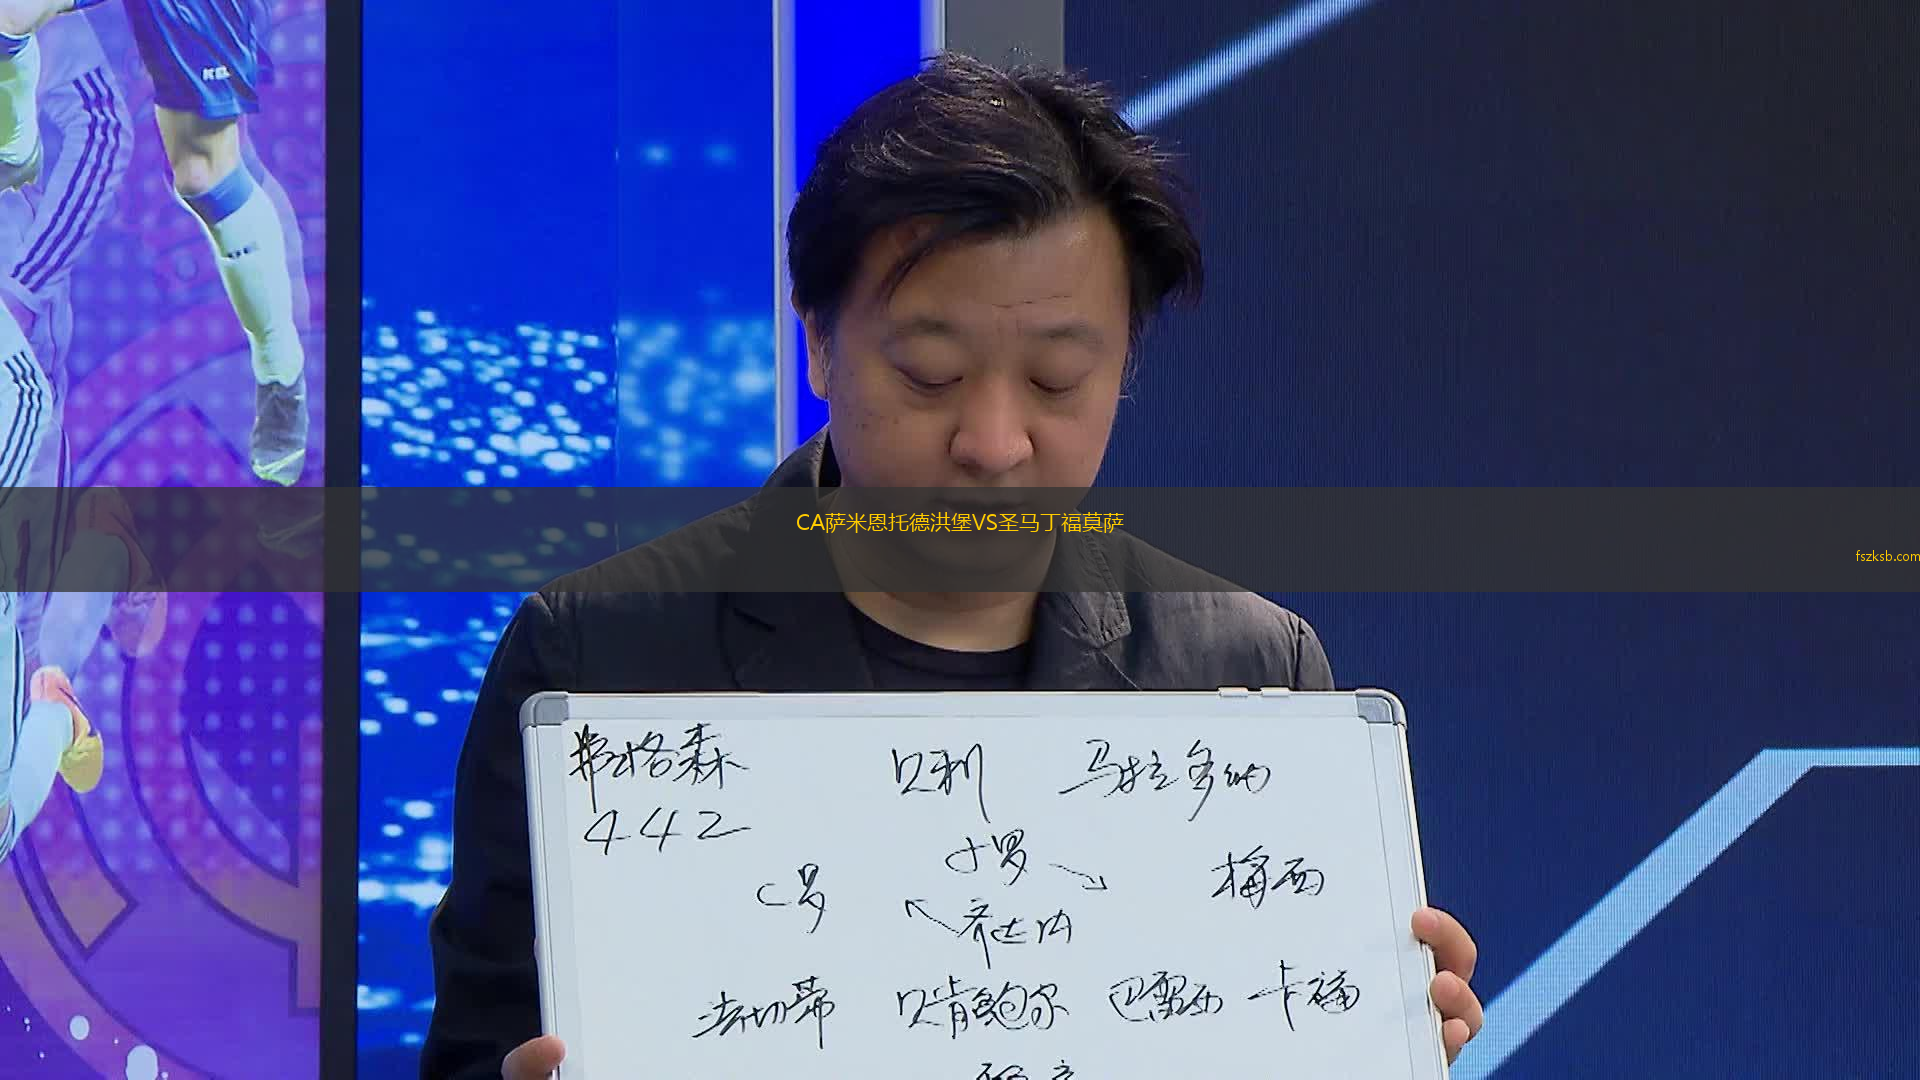 KEL
CA萨米恩托德洪堡VS圣马丁福莫萨
fszksb.com
弗格森 贝利 马拉多纳
442
小罗
C罗 梅西
齐达内
法切蒂 贝肯鲍尔 巴雷西 卡福